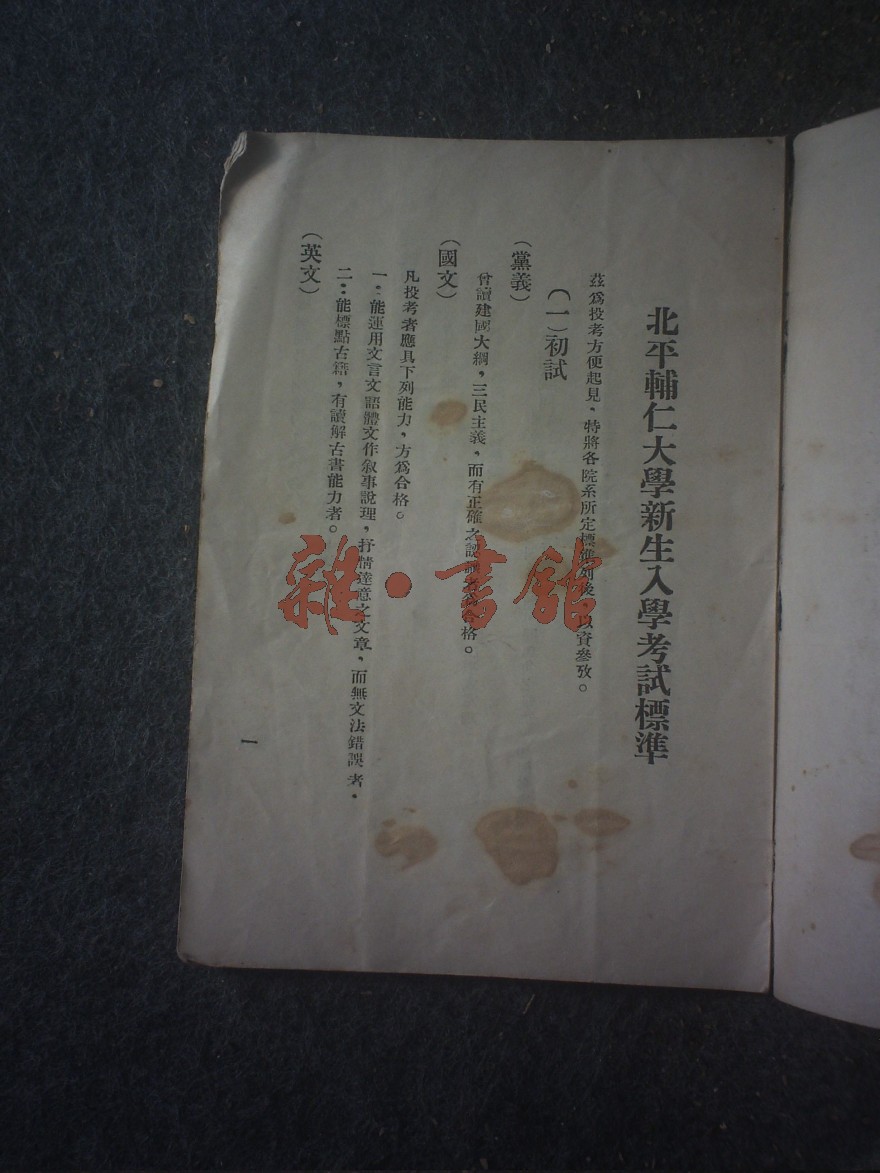 北平輔仁大學新生入學考試標準
茲爲投考方便起見，特將各院系所定標準列後，以資參攷。
（一）初試
（黨義）
曾讀建國大綱，三民主義，而有正確之認識者爲合格。
（國文）
凡投考者應具下列能力，方爲合格。
一：能運用文言文語體文作叙事說理，抒情達意之文章，而無文法錯誤者。
二：能標點古籍，有讀解古書能力者。
（英文）
一
雜·書館